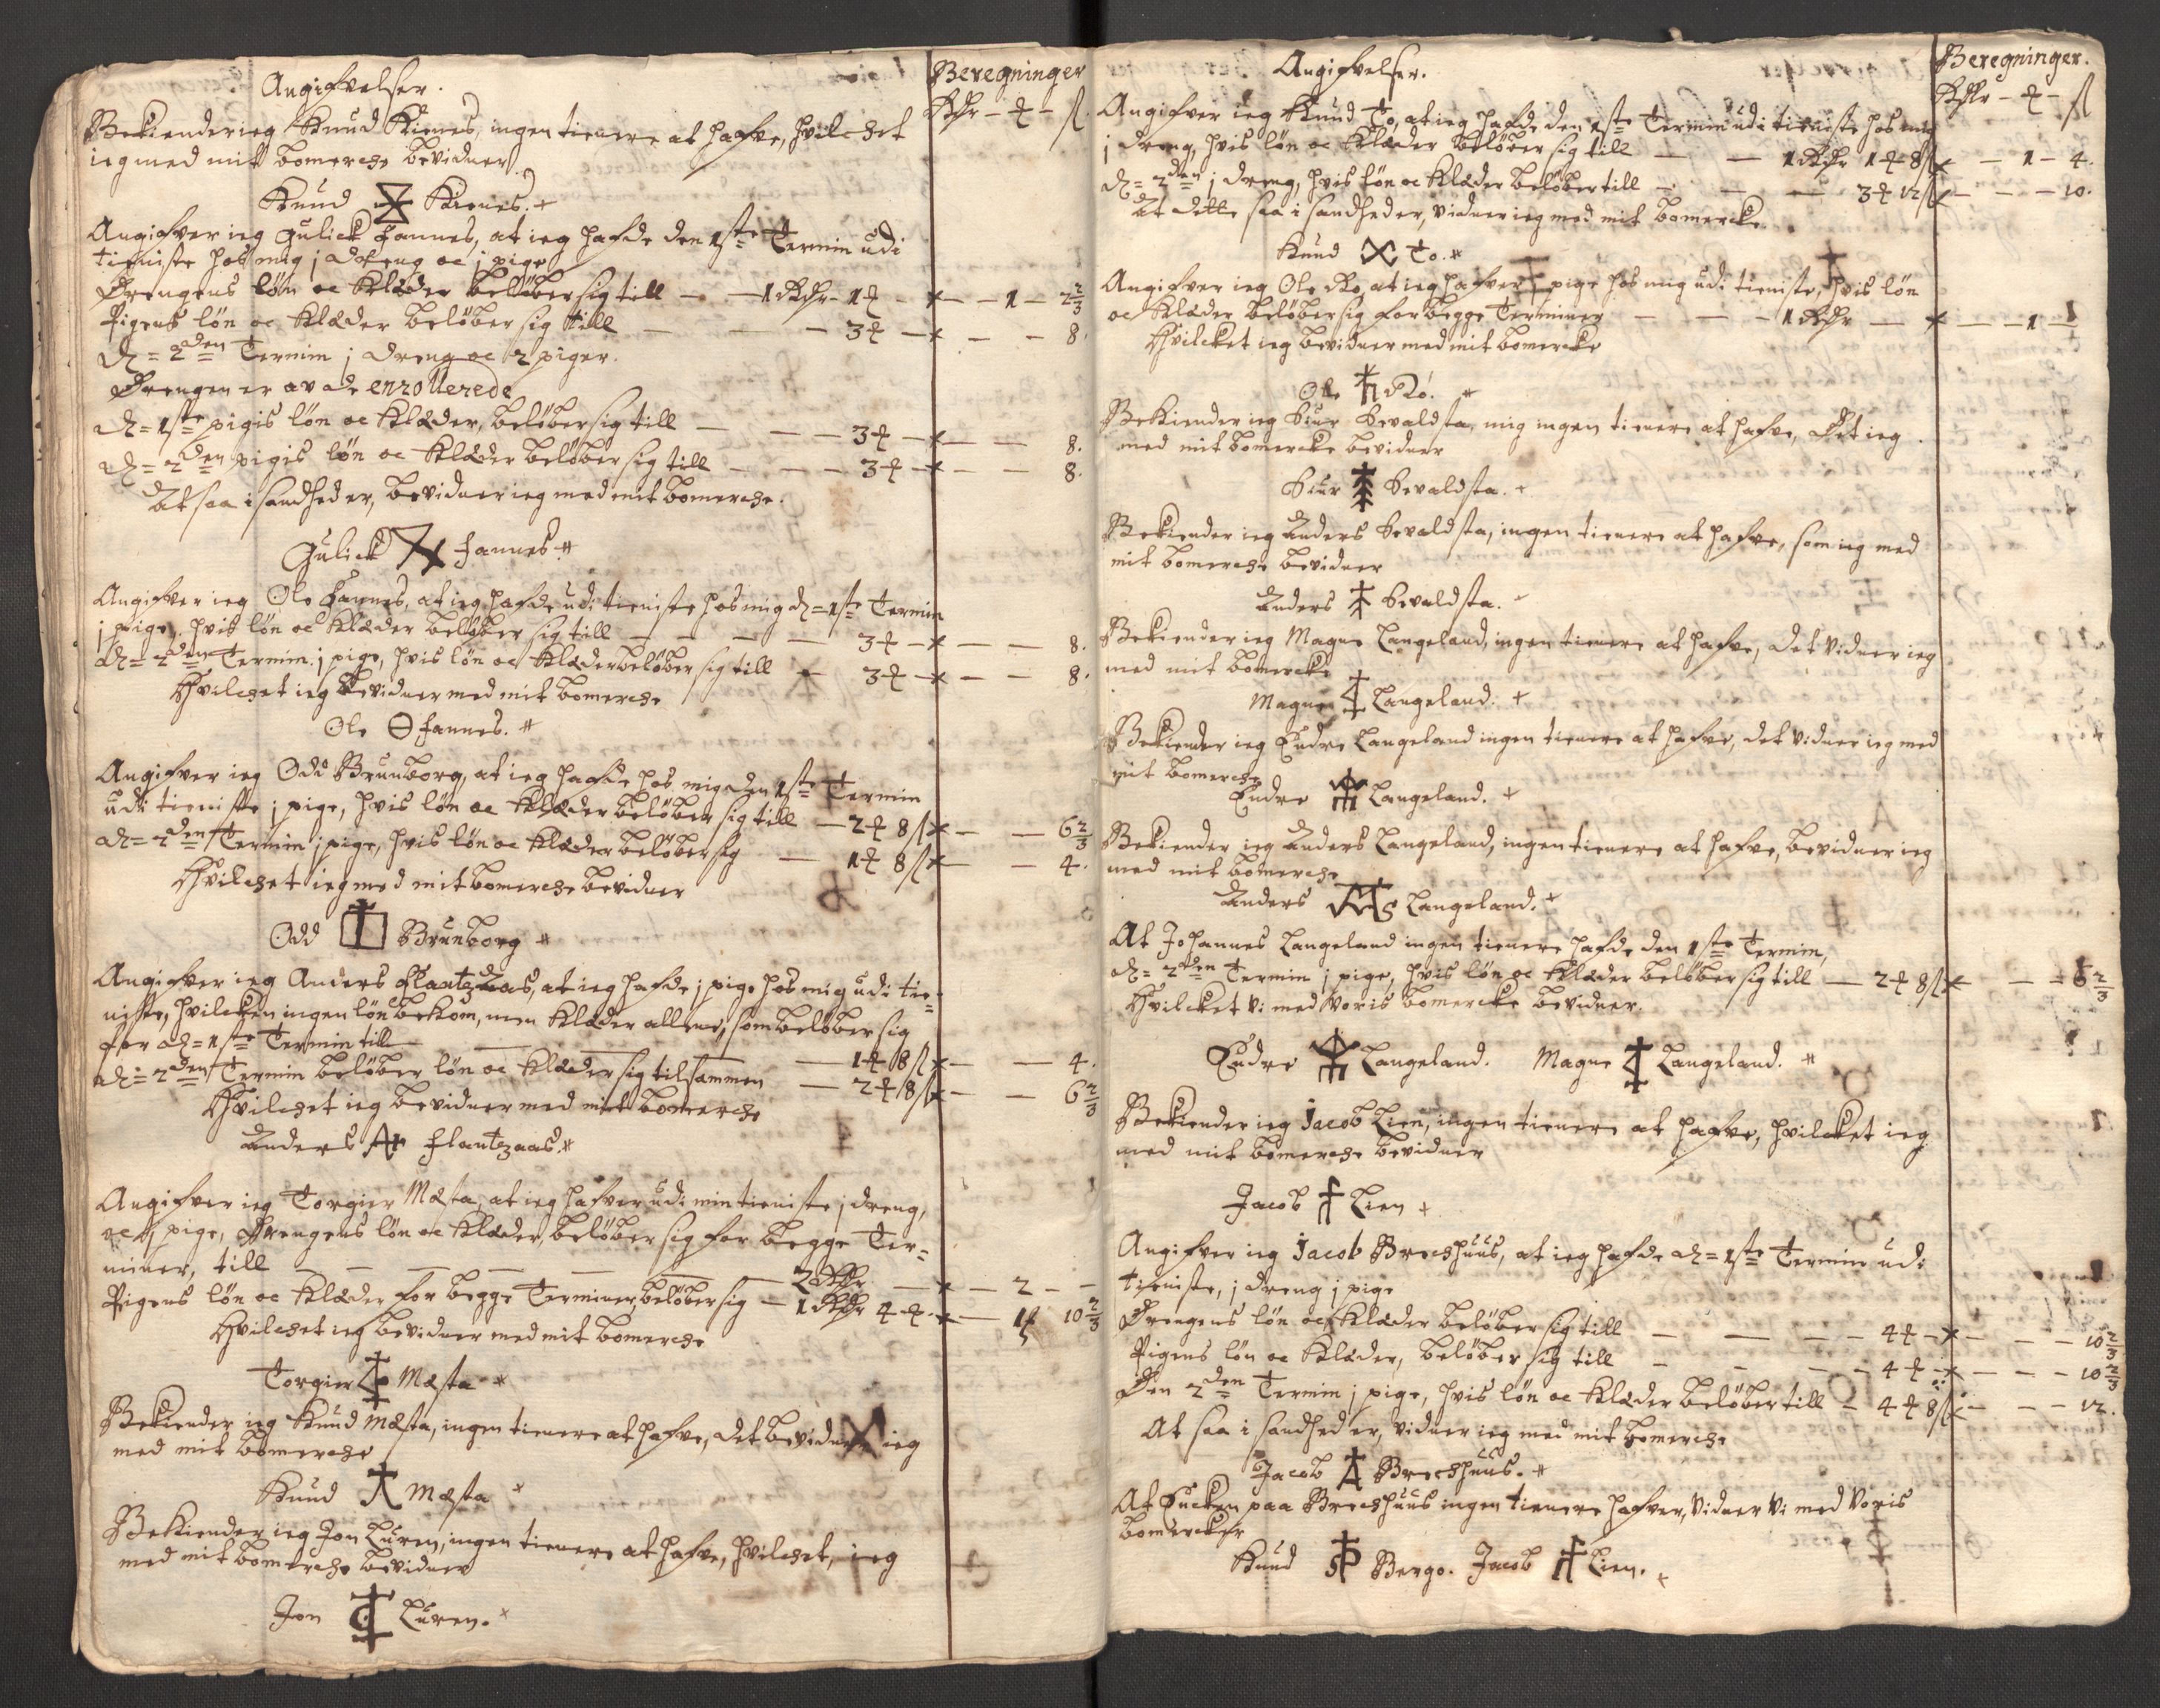 Angifvelser.
Beregninger
Rdr – ₰ – ß.
Bekiender ieg Knud Kienes, ingen tienere at hafve, hvilchet
ieg med mit bomerche bevidner.
Knud Kienes.
Angifver ieg Gulick Fannes, at ieg hafde den 1ste Termin udi
tieniste hos mig j dreng oc j pige
Drengens løn oc Klæder beløber sig till — 1 Rdr – 1 ₰ — 1 – 2 2/3
Pigens løn oc Klæder beløber sig till — 3 ₰ — 8.
d= 2den Termin j dreng oc 2 piger.
Drengen er av de enrollerede
d= 1ste pigis løn oc Klæder, beløber sig till — 3 ₰ — 8.
d= 2den pigis løn oc Klæder beløber sig till — 3 ₰ — 8.
At saa i sandhed er, bevidner ieg med mit bomerche.
Gulick Fannes
Angifver ieg Ole Fannes, at ieg hafde udi tieniste hos mig d= 1ste Termin
j pige, hvis løn oc Klæder beløber sig till — 3 ₰ — 8.
d= 2den Termin j pige, hvis løn oc Klæder beløber sig till — 3 ₰ — 8.
Hvilchet ieg bevidner med mit bomerche
Ole Fannes.
Angifver ieg Odd Brunborg, at ieg hafde hos mig den 1ste Termin
udi tieniste j pige, hvis løn oc Klæder beløber sig till — 2 ₰ 8 ß — 6 2/3
d= 2den Termin j pige, hvis løn oc Klæder beløber sig — 1 ₰ 8 ß — 4.
Hvilchet ieg med mit bomerche bevidner
Odd Brunborg
Angifver ieg Anders Flantzaas, at ieg hafde j pige hos mig udi tie=
niste, hvilcken ingen løn bekom, men Klæder allene, som beløber sig
for d= 1ste Termin till — 1 ₰ 8 ß — 4.
d= 2den Termin beløber løn oc Klæder sig tilsammen — 2 ₰ 8 ß — 6 2/3
Hvilchet ieg bevidner med mit bomerche
Anders Flantzaas.
Angifver ieg Torgier Mæsta, at ieg hafver udi min tieniste j dreng,
oc j pige, Drengens løn oc Klæder, beløber sig for begge Ter=
miner, till — 2 Rdr — 2 —
Pigens løn oc Klæder for begge Terminer, beløber sig — 1 Rdr 4 ₰ — 1 10 2/3
Hvilchet ieg bevidner med mit bomerche
Torgier Mæsta
Bekiender ieg Knud Mæsta, ingen tienere at hafve, det bevidner ieg
med mit bomerche
Knud Mæsta
Bekiender ieg Jon Luren, ingen tienere at hafve, hvilchet, ieg
med mit bomerche bevidner
Jon Luren.
Angifvelser.
Beregninger.
Rdr – ₰ – ß
Angifver ieg Knud To, at ieg hafde den 1ste Termin udi tieniste hos mig
j dreng, hvis løn oc Klæder beløber sig till — 1 Rdr 1 ₰ 8 ß — 1 – 4.
d= 2den j dreng, hvis løn oc Klæder beløber till — 3 ₰ 12 ß — 10.
At dette saa i sandhed er, vidner ieg med mit bomercke
Knud To.
Angifver ieg Ole Rø, at ieg hafver j pige hos mig udi tieniste, hvis løn
oc Klæder beløber sig for begge Terminer — 1 Rdr — 1 —
Hvilcket ieg bevidner med mit bomercke
Ole Rø.
Bekiender ieg Siur Sevaldsta, mig ingen tienere at hafve, Det ieg
med mit bomercke bevidner
Siur Sevaldsta.
Bekiender ieg Anders Sevaldsta, ingen tienere at hafve, som ieg med
mit bomerche bevidner
Anders Sevaldsta.
Bekiender ieg Magne Langeland, ingen tienere at hafve, det vidner ieg
med mit bomercke
Magne Langeland.
Bekiender ieg Endre Langeland ingen tienere at hafve, det vidner ieg med
mit bomerche
Endre Langeland.
Bekiender ieg Anders Langeland, ingen tienere at hafve, bevidner ieg
med mit bomerche
Anders Langeland.
At Johannes Langeland ingen tienere hafde den 1ste Termin,
d= 2den Termin j pige, hvis løn oc Klæder beløber sig till — 2 ₰ 8 ß — 6 2/3
Hvilcket vi med voris bomercke bevidner.
Endre Langeland. Magne Langeland.
Bekiender ieg Jacob Lien, ingen tienere at hafve, hvilcket ieg
med mit bomerche bevidner
Jacob Lien
Angifver ieg Jacob Brechhuus, at ieg hafde d= 1ste Termin udi
tieniste, j dreng j pige
Drengens løn oc Klæder beløber sig till — 4 ₰ — 10 2/3
Pigens løn oc Klæder, beløber sig till — 4 ₰ — 10 2/3
Den 2den Termin j pige, hvis løn oc Klæder beløber till — 4 ₰ 8 ß — 12.
At saa i sandhed er, vidner ieg med mit bomerche
Jacob Brechhuus.
At Encken paa Brechhuus ingen tienere hafver, vidner vi med voris
bomercker
Knud Berge. Jacob Lien.